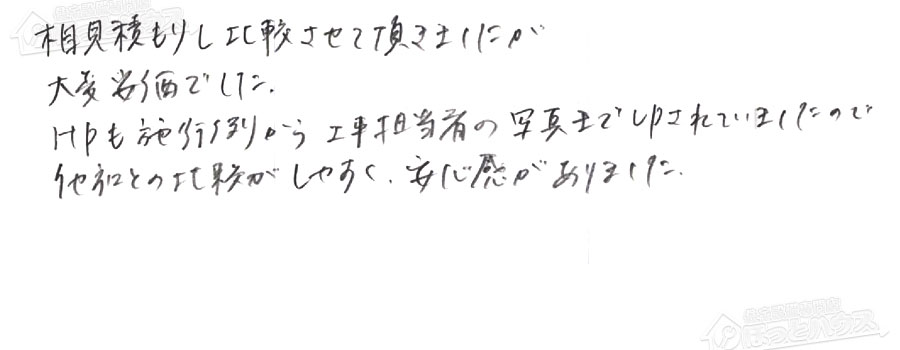 相見積もりし比較させて頂きましたが
大変安価でした。
HPも施行例から工事担当者の写真までUPされていましたので
他社との比較がしやすく、安心感がありました。
ほっとハウス